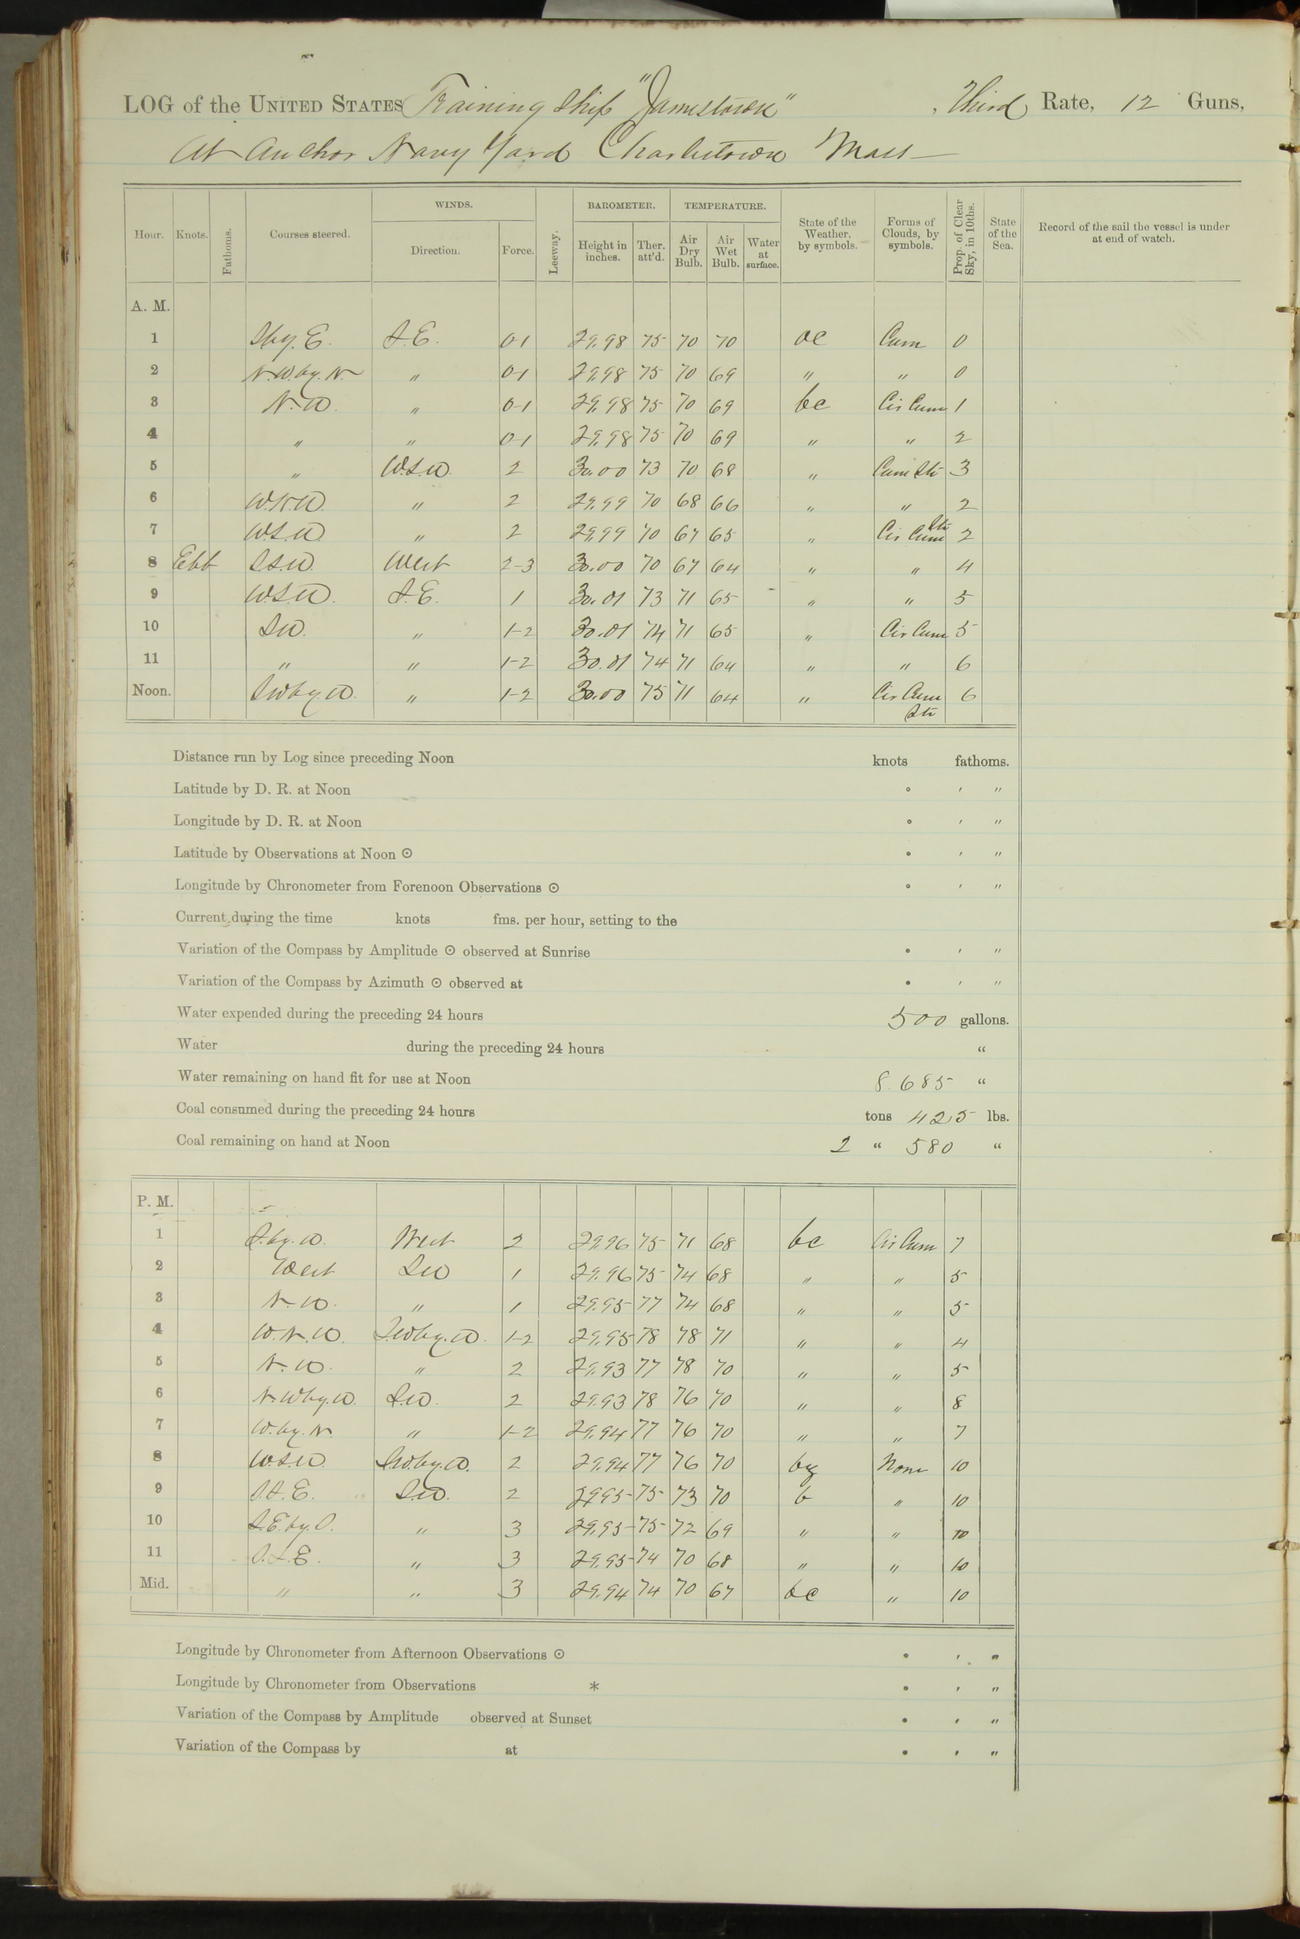 LOG of the UNITED STATES Training Ship "Jamestown", Third Rate, 12 Guns,
At Anchor Navy Yard Charlestown Mass
WINDS. BAROMETER. TEMPERATURE.
Hour. Knots. Fathoms. Courses steered. Direction. Force. Leeway. Height in inches. Ther. att'd. Air Dry Bulb. Air Wet Bulb. Water at surface. State of the Weather, by symbols. Forms of Clouds, by symbols. Prop. of Clear Sky, in 10ths. State of the Sea. Record of the sail the vessel is under at end of watch.
A. M.
1 S by. E. S.E. 0-1 29.98 75 70 70 oc Cum 0
2 N.W. by. N. " 0-1 29.98 75 70 69 " " 0
3 N.W. " 0-1 29.98 75 70 69 bc Cir Cum 1
4 " " 0-1 29.98 75 70 69 " " 2
5 " W.S.W. 2 30.00 73 70 68 " Cum Str 3
6 W.N.W. " 2 29.99 70 68 66 " " 2
7 W.S.W. " 2 29.99 70 67 65 " Cir Cum Str 2
8 Ebb S.S.W. West 2-3 30.00 70 67 64 " " 4
9 W.S.W. S.E. 1 30.01 73 71 65 " " 5
10 S.W. " 1-2 30.01 74 71 65 " Cir Cum 5
11 " " 1-2 30.01 74 71 64 " " 6
Noon. S.W by. W. " 1-2 30.00 75 71 64 " Cir Cum Str 6
Distance run by Log since preceding Noon knots fathoms.
Latitude by D. R. at Noon ° ′ ″
Longitude by D. R. at Noon ° ′ ″
Latitude by Observations at Noon ☉ ° ′ ″
Longitude by Chronometer from Forenoon Observations ☉ ° ′ ″
Current during the time knots fms. per hour, setting to the
Variation of the Compass by Amplitude ☉ observed at Sunrise ° ′ ″
Variation of the Compass by Azimuth ☉ observed at ° ′ ″
Water expended during the preceding 24 hours 500 gallons.
Water during the preceding 24 hours "
Water remaining on hand fit for use at Noon 8.685 "
Coal consumed during the preceding 24 hours tons 425 lbs.
Coal remaining on hand at Noon 2 " 580 "
P. M.
1 S. by. W. West 2 29.96 75 71 68 bc Cir Cum 7
2 West S.W 1 29.96 75 74 68 " " 5
3 N.W. " 1 29.95 77 74 68 " " 5
4 W.N.W. S.W by. W. 1-2 29.95 78 78 71 " " 4
5 N.W. " 2 29.93 77 78 70 " " 5
6 N.W by. W. S.W. 2 29.93 78 76 70 " " 8
7 W. by. N. " 1-2 29.94 77 76 70 " " 7
8 W.S.W. S.W. by. W. 2 29.94 77 76 70 None 10
9 S.S.E. S.W. 2 29.95 75 73 70 b " 10
10 S.E. by. S. " 3 29.95 75 72 69 " " 10
11 S.S.E. " 3 29.95 74 70 68 " " 10
Mid. " " 3 29.94 74 70 67 bc " 10
Longitude by Chronometer from Afternoon Observations ☉ ° ′ ″
Longitude by Chronometer from Observations * ° ′ ″
Variation of the Compass by Amplitude observed at Sunset ° ′ ″
Variation of the Compass by at ° ′ ″